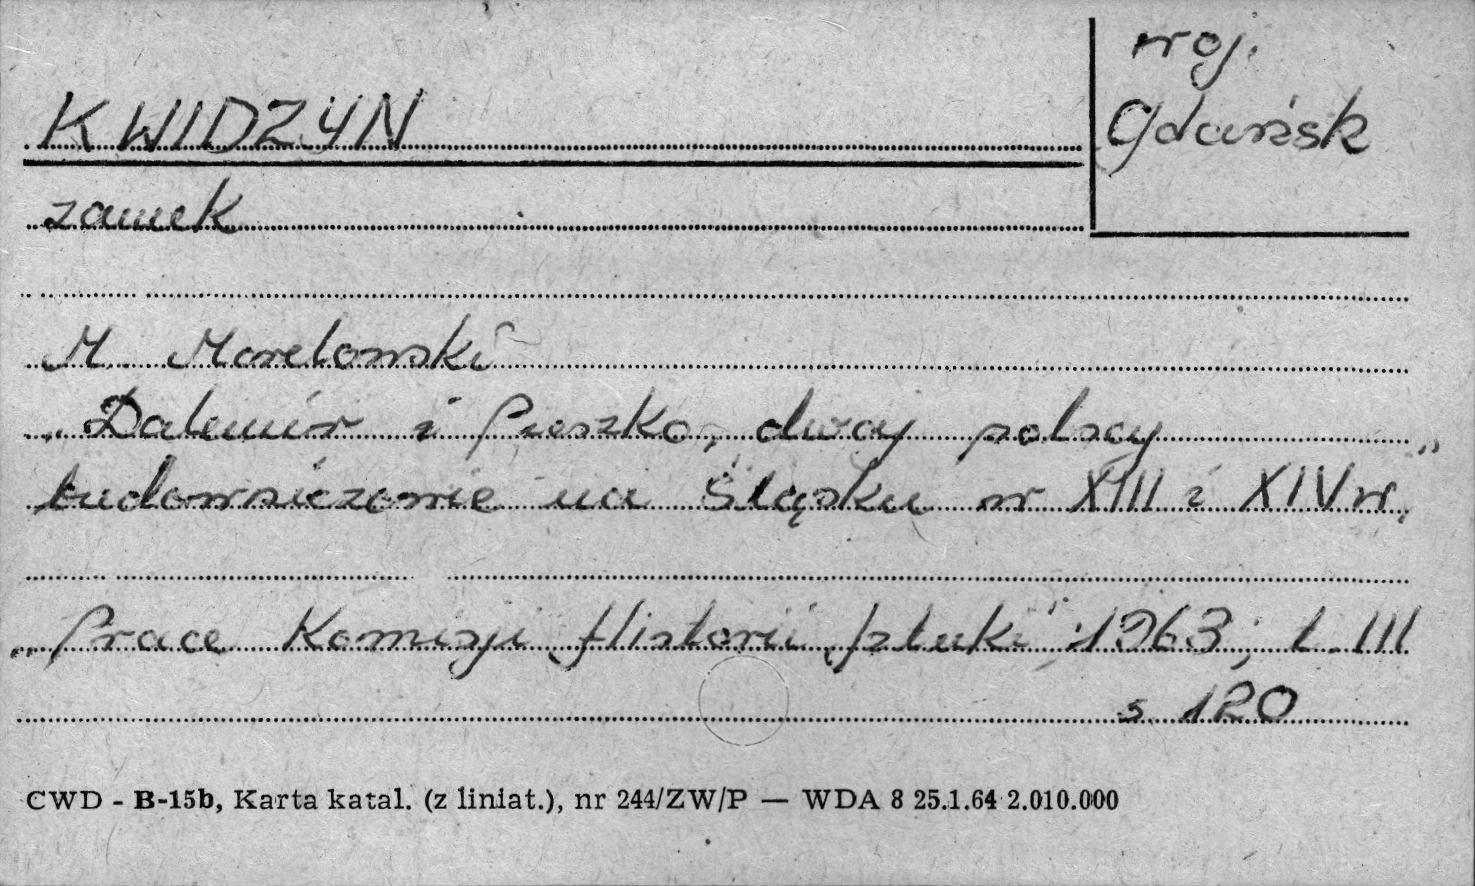 woj.
Gdańsk
KWIDZYN
zamek
M Morelowski
„Dalemir i Pieszko, dwaj polscy
budowniczowie na Śląsku w XIII i XIV w."
„Prace Komisji Historii Sztuki", 1963, t. III
s. 120
CWD - B-15b, Karta katal. (z liniat.), nr 244/ZW/P — WDA 8 25.1.64 2.010.000